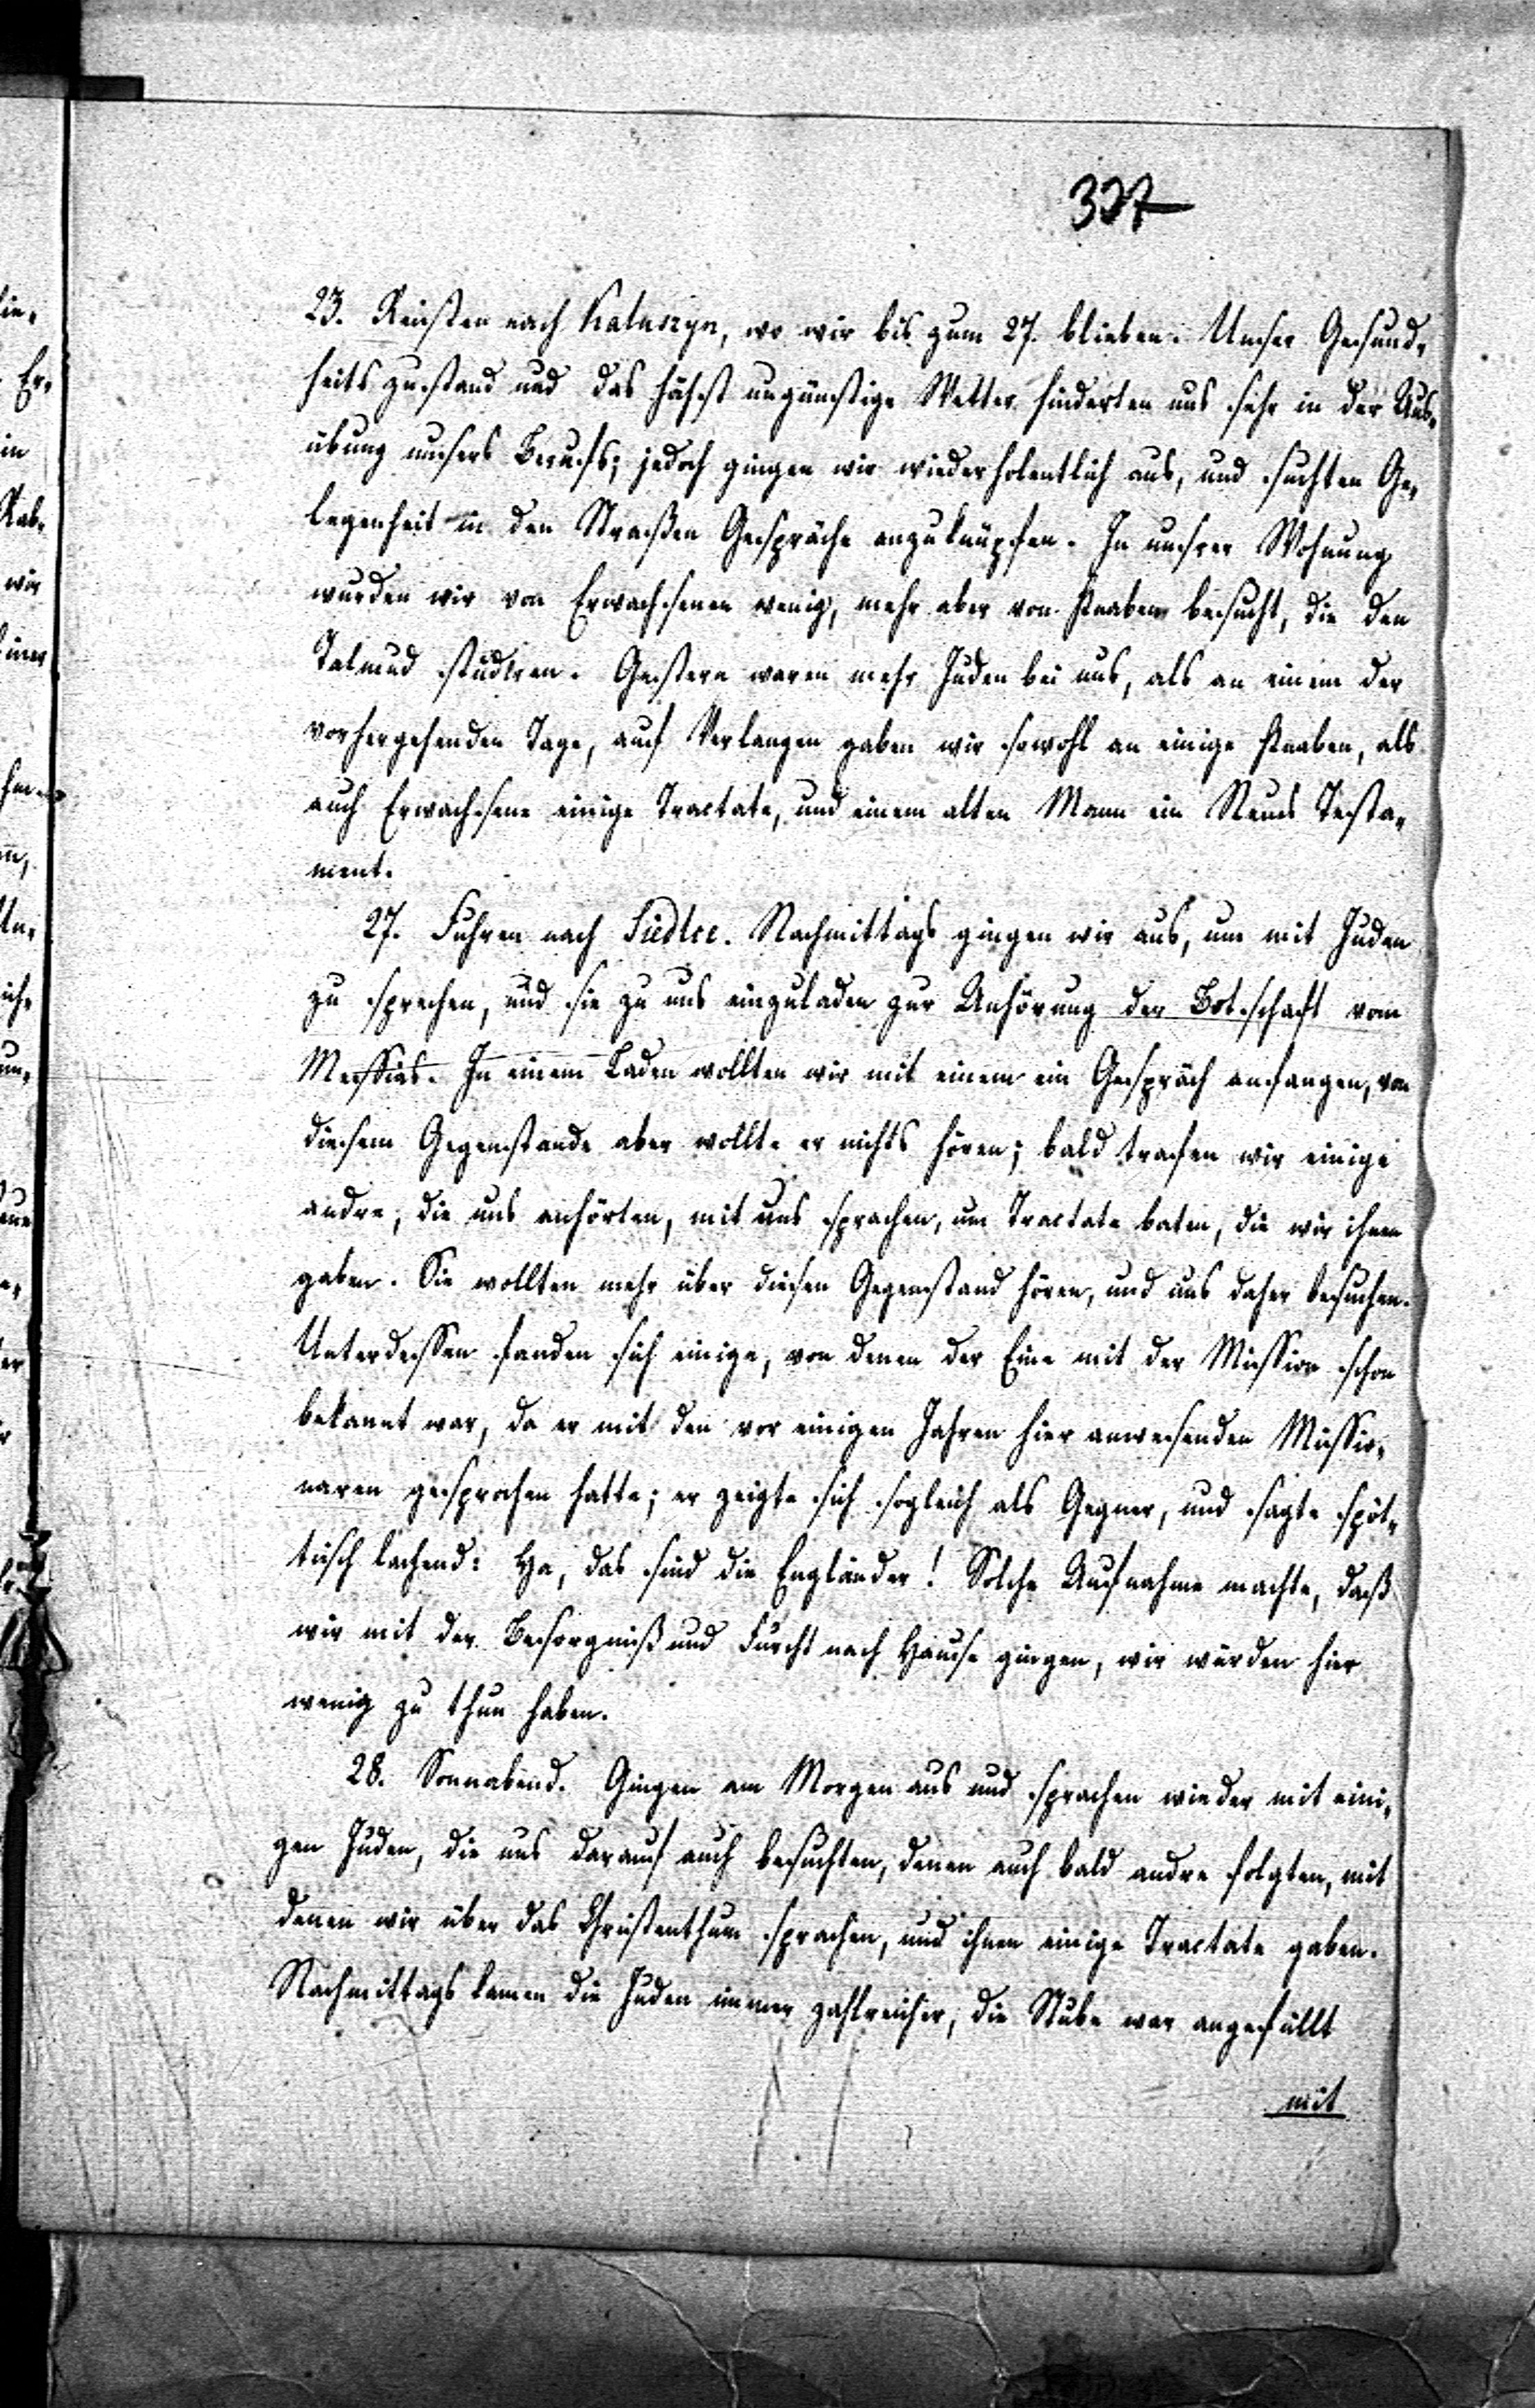 337
23. Reisten nach Kaluszyn, wo wir bis zum 27. blieben. Unser Gesund-
heitszustand und das höchst ungünstige Wetter hinderten uns sehr in der Aus-
übung unsers Berufs; jedoch gingen wir wiederholentlich aus, und suchten Ge-
legenheit in den Straßen Gespräche anzuknüpfen. In unsrer Wohnung
wurden wir von Erwachsenen wenig, mehr aber von Knaben besucht, die den
Talmud studiren. Gestern waren mehr Juden bei uns, als an einem der
vorhergehenden Tage, auf Verlangen gaben wir sowohl an einige Knaben, als
auch Erwachsene einige Tractate, und einem alten Mann ein Neues Testa-
ment.
27. Fuhren nach Siedlce. Nachmittags gingen wir aus, um mit Juden
zu sprechen, und sie zu uns einzuladen zur Anhörung der Botschaft vom
Messias. In einem Laden wollten wir mit einem ein Gespräch anfangen, von
diesem Gegenstande aber wollte er nichts hören; bald trafen wir einige
andre, die uns anhörten, mit uns sprachen, um Tractate baten, die wir ihnen
gaben. Sie wollten mehr über diesen Gegenstand hören, und uns daher besuchen.
Unterdessen fanden sich einige, von denen der Eine mit der Mission schon
bekannt war, da er mit den vor einigen Jahren hier anwesenden Missio-
naren gesprochen hatte; er zeigte sich sogleich als Gegner, und sagte spöt-
tisch lachend: Ha, das sind die Engländer! Solche Aufnahme machte, daß
wir mit der Besorgniß und Furcht nach Hause gingen, wir würden hier
wenig zu thun haben.
28. Sonnabend. Gingen am Morgen aus und sprachen wieder mit eini-
gen Juden, die uns darauf auch besuchten, denen auch bald andre folgten, mit
denen wir über das Christenthum sprachen, und ihnen einige Tractate gaben.
Nachmittags kamen die Juden immer zahlreicher, die Stube war angefüllt
mit